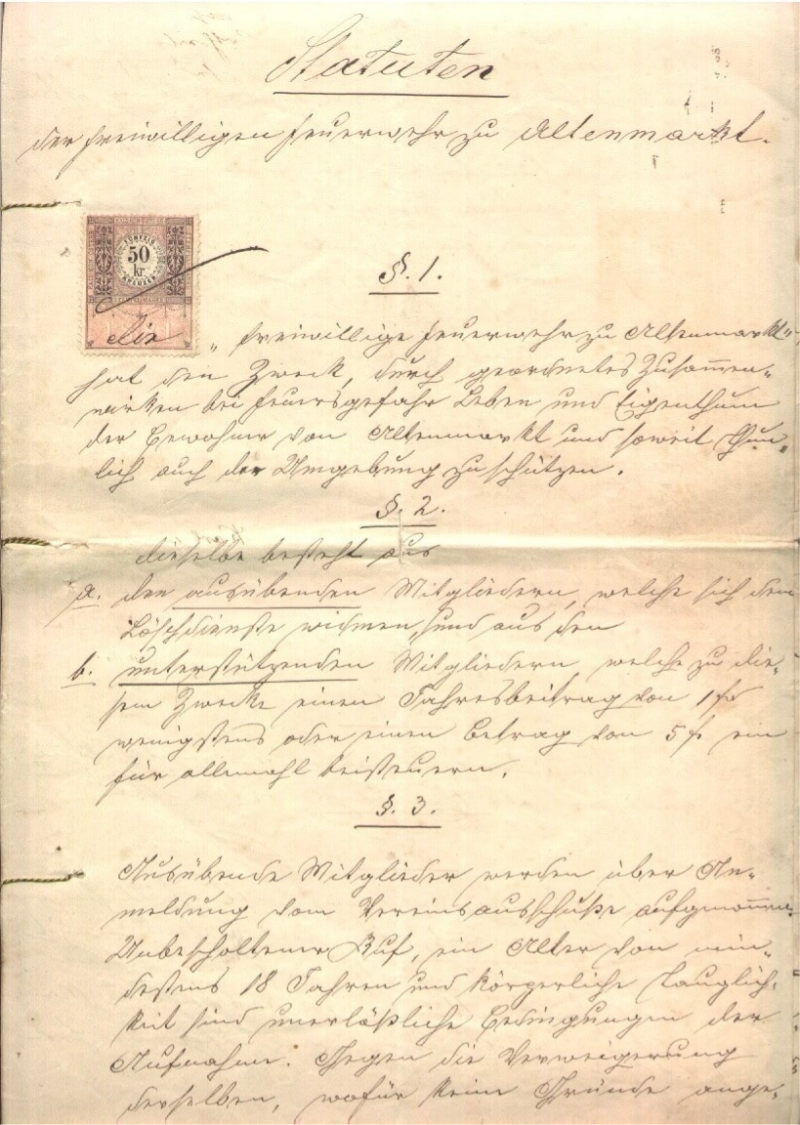 Statuten
der freiwilligen Feuerwehr zu Altenmarkt.
50
kr
§. 1.
Die „freiwillige Feuerwehr zu Altenmarkt“
hat den Zweck, durch geordnetes Zusammen„
wirken bei Feuersgefahr Leben und Eigenthum
der Bewohner von Altenmarkt und soweit thun„
lich auch der Umgebung zu schützen.
§. 2.
Dieselbe besteht aus
a. den ausübenden Mitgliedern, welche sich dem
Löschdienste widmen, und aus den
b. unterstützenden Mitgliedern, welche zu die„
sem Zwecke einen Jahresbeitrag von 1 fl
wenigstens oder einen Betrag von 5 fl ein
für allemahl beisteuern.
§. 3.
Ausübende Mitglieder werden über An„
meldung vom Vereinsausschuße aufgenommen.
Unbescholtener Ruf, ein Alter von min„
destens 18 Jahren und körperliche Tauglich„
keit sind unerläßliche Bedingungen der
Aufnahme. Gegen die Verweigerung
derselben, wofür keine Gründe ange„